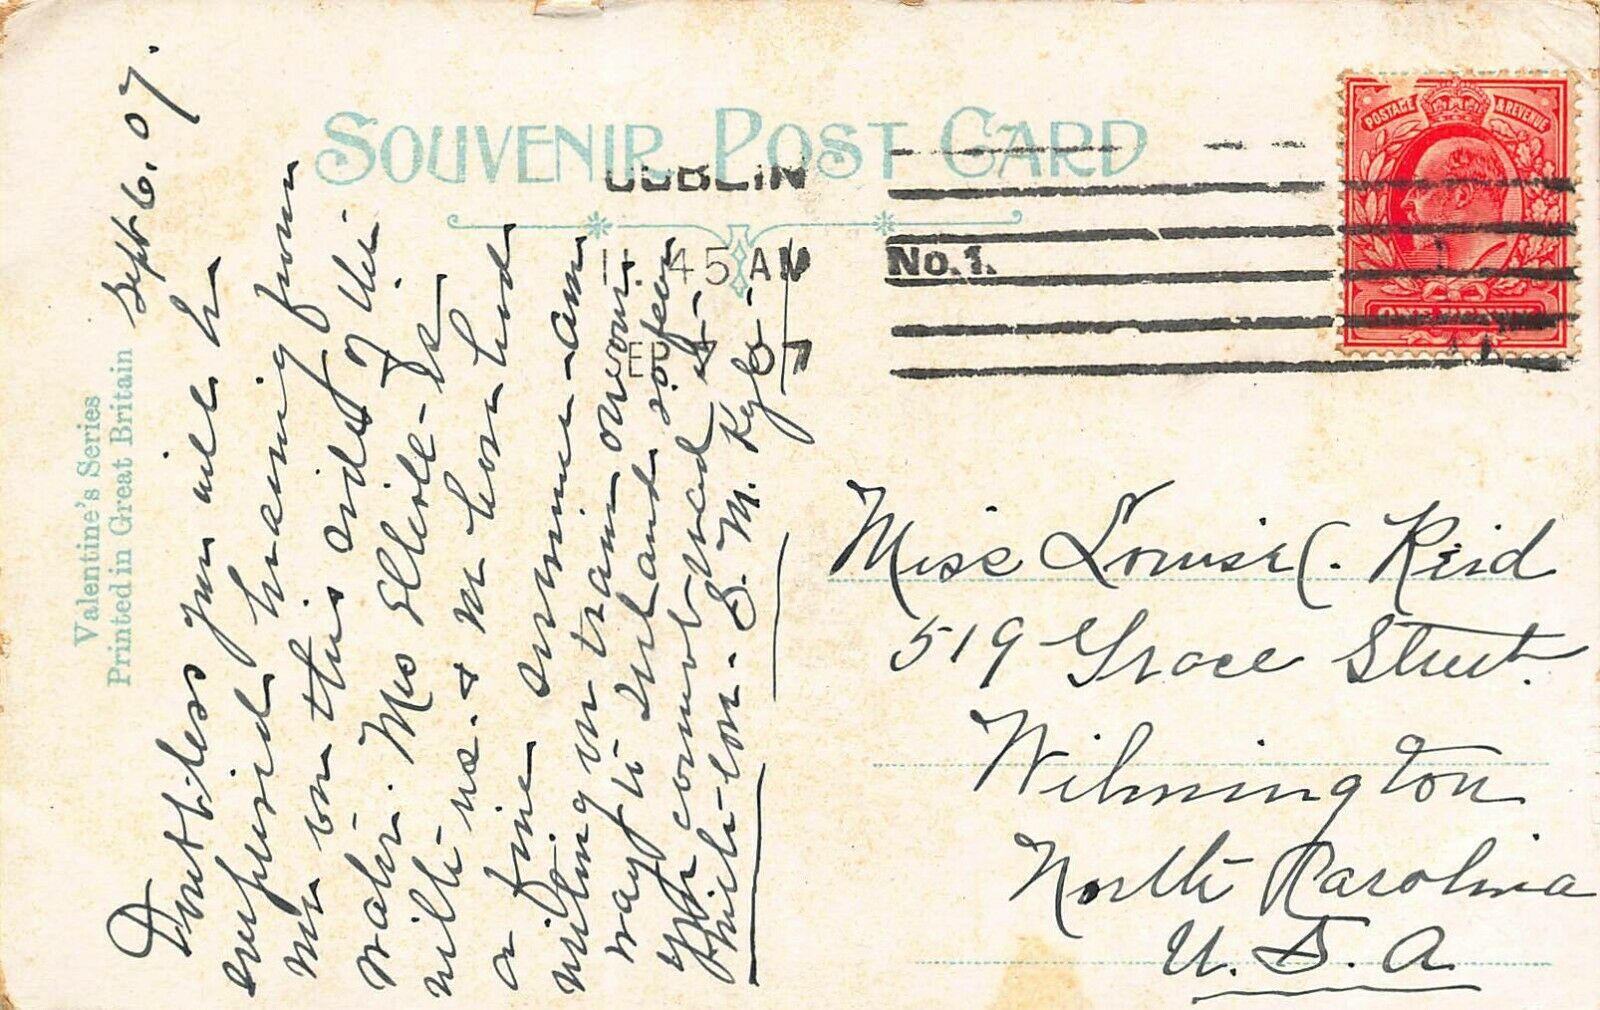 SOUVENIR POST CARD
Valentine's Series
Printed in Great Britain
DUBLIN
11.45 AM
SEP 7 07
No. 1.
POSTAGE & REVENUE
Sept 6, 07.
Doubtless you will be
surprised hearing from
me on this side of the
water. Mrs
with us. & we have had
a fine summer - am
writing on train on our
way to Ireland so fear
you cannot read it -
With love - S. M. Kyle -
Miss Louise C. Reid
519 Grace Street.
Wilmington
North Carolina
U. S. A